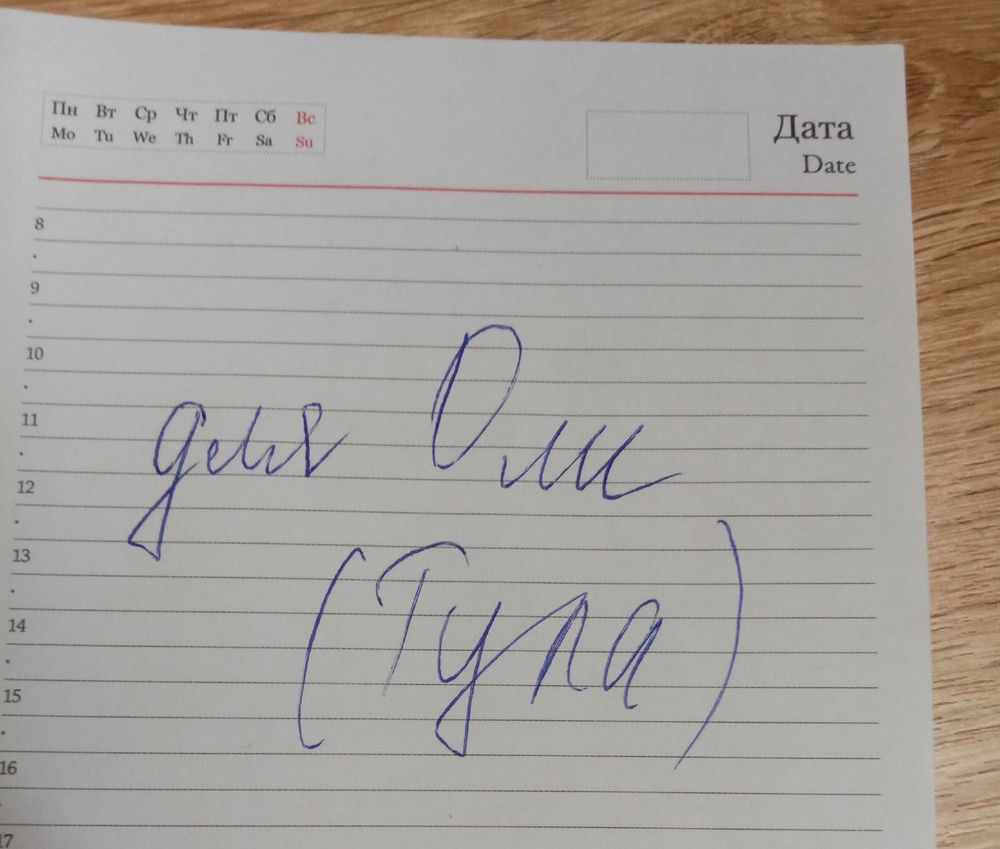 Пн Вт Ср Чт Пт Сб Вс
Mo Tu We Th Fr Sa Su
Дата
Date
8
9
10
11
для Оли
12
13
(Тула)
14
15
16
17